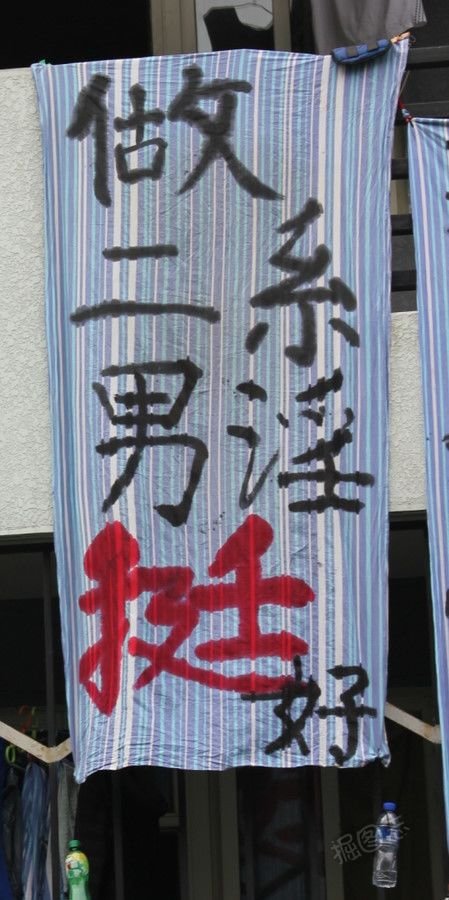 做
二系
男淫
挺好
掘图志